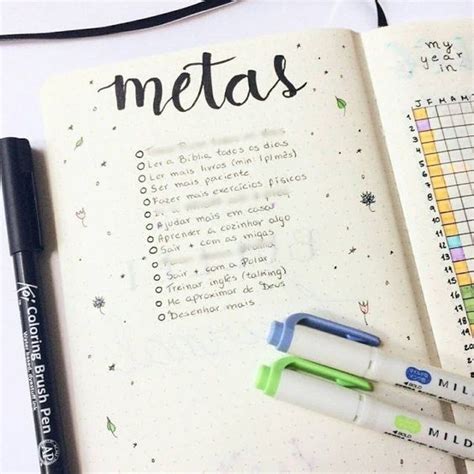 metas
Ler a Bíblia todos os dias
Ler mais livros (min: 1p/mês)
Ser mais paciente
Fazer mais exercícios físicos
Ajudar mais em casa
Aprender a cozinhar algo
Sair + com as migas
Sair + com a Polar
Treinar inglês (talking)
Me aproximar de Deus
Desenhar mais
my
year
in
J F M A M J
1
2
3
4
5
6
7
8
9
10
11
12
13
14
15
16
17
18
19
Koi Coloring Brush Pen
AP
BOLD
MILD
BOLD
MILD